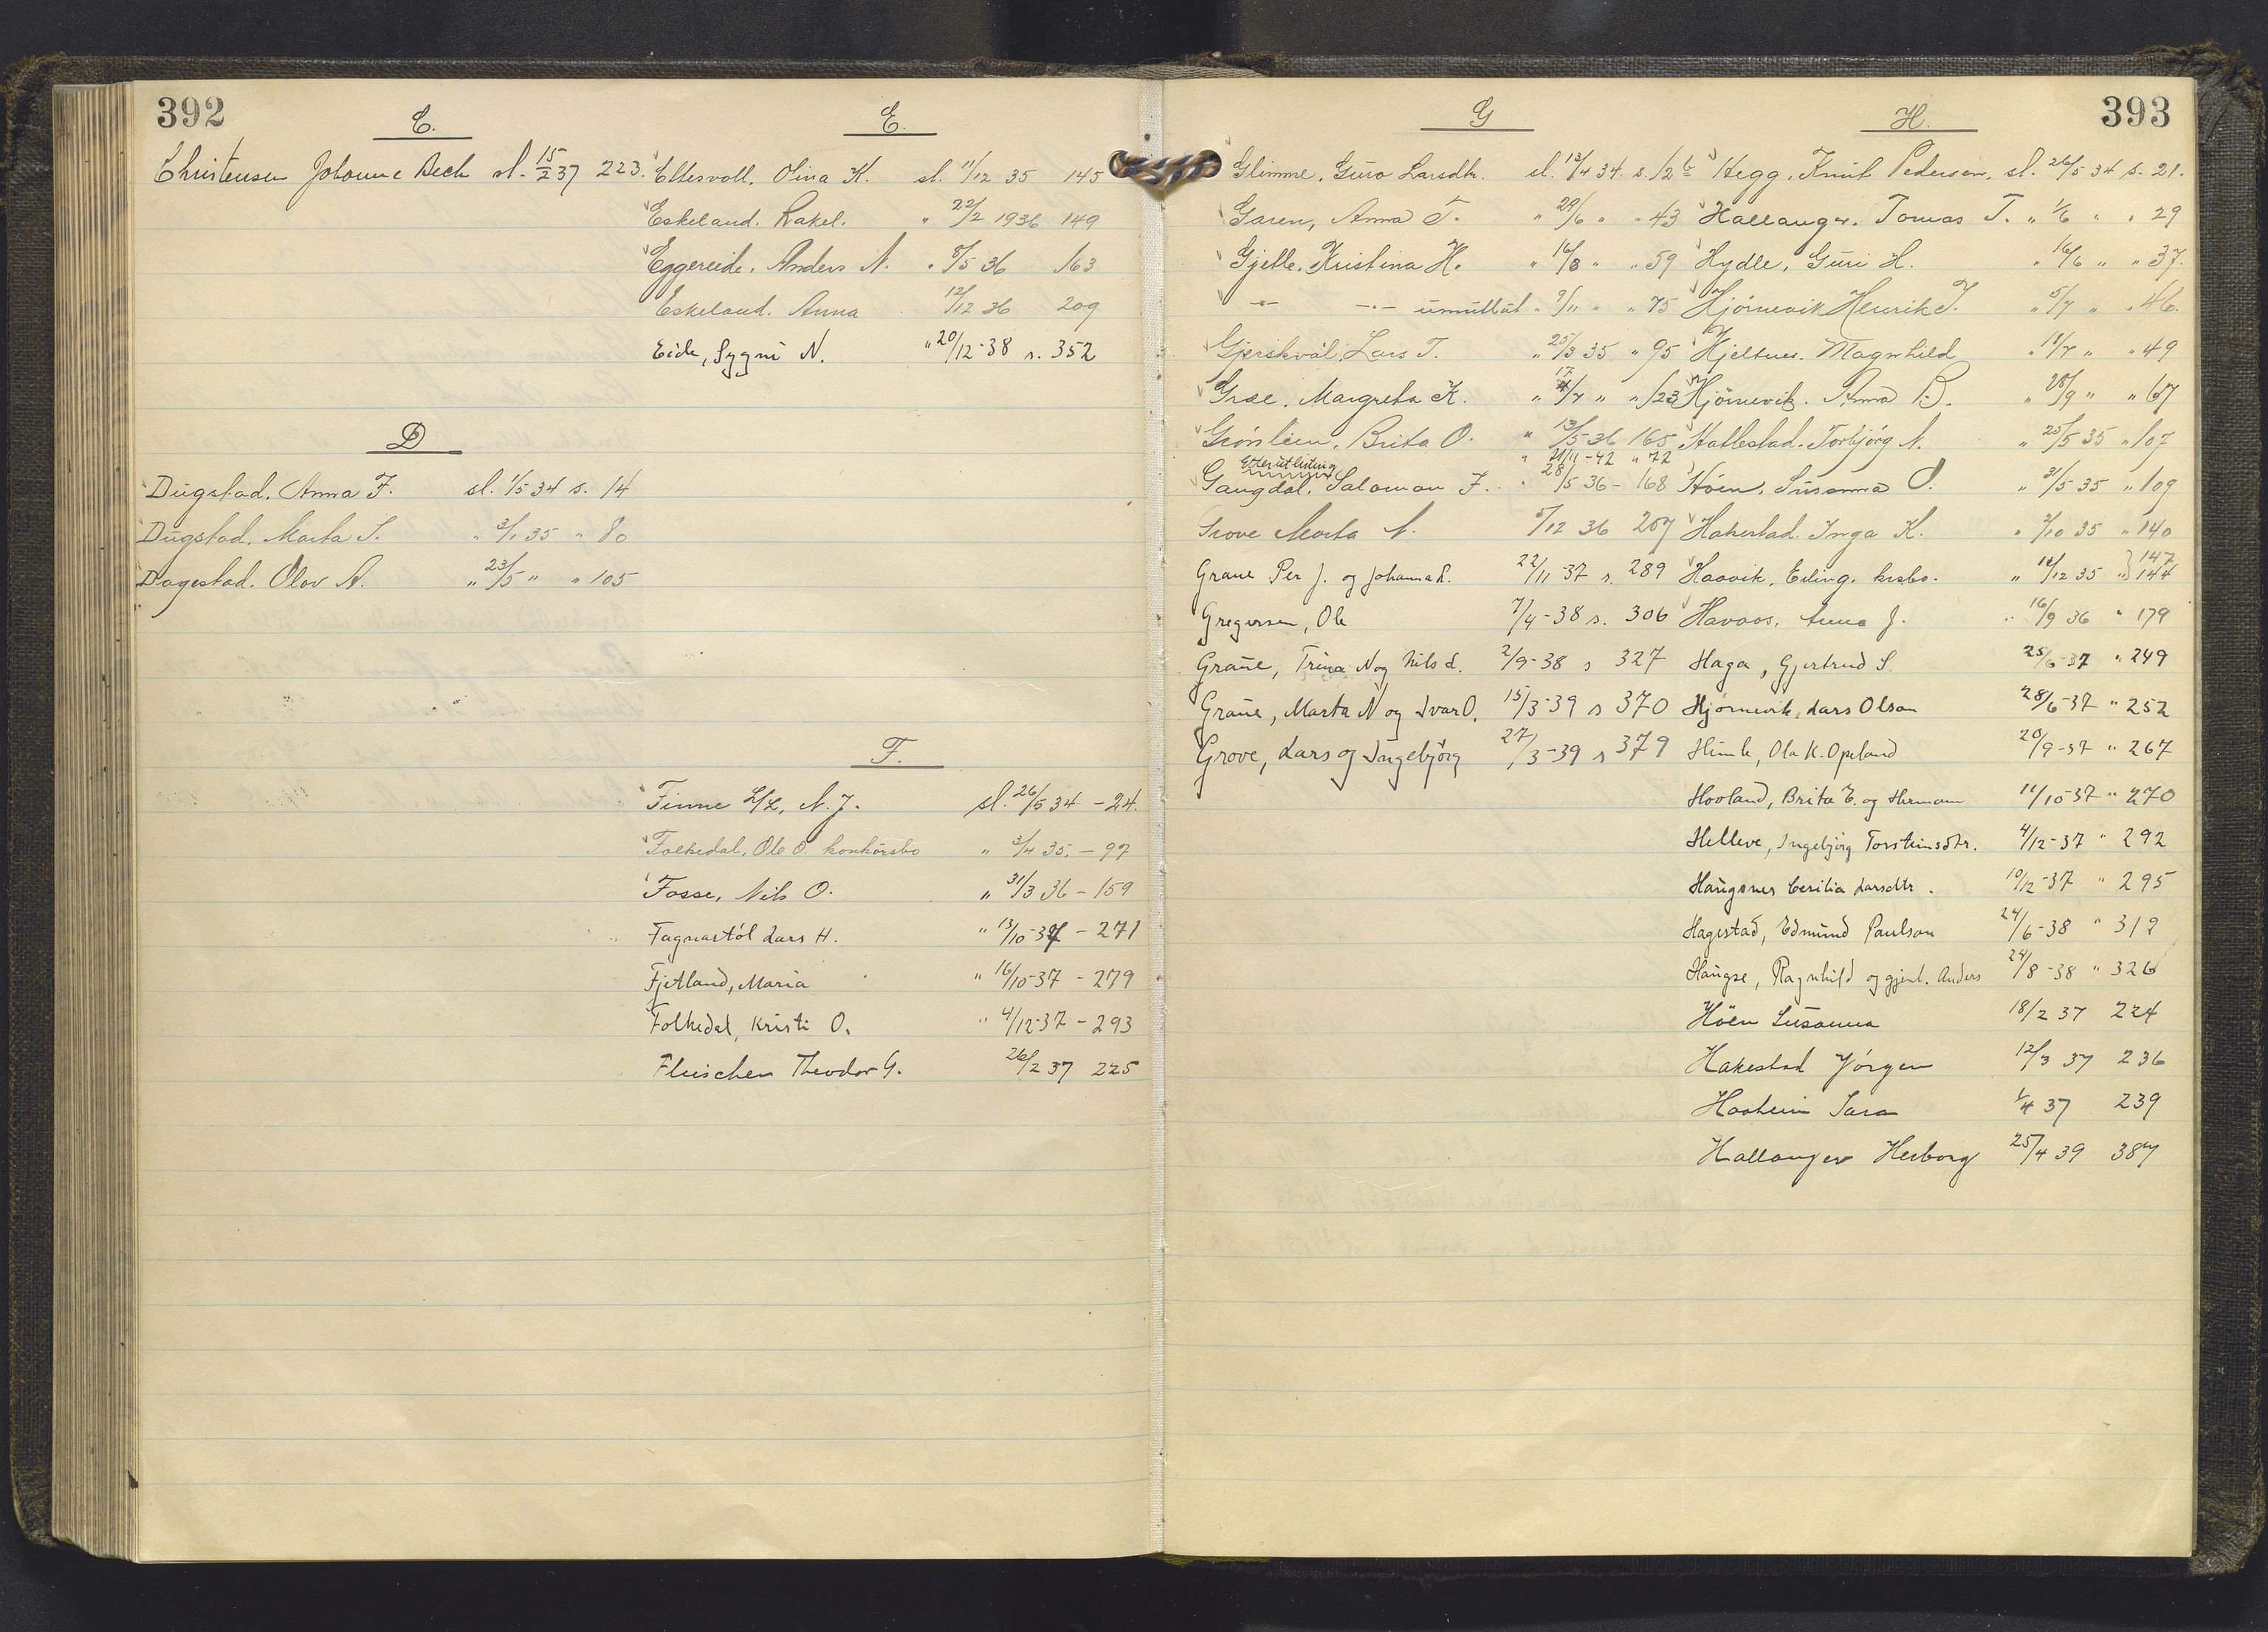 392
C.
Christensen Johanne Bech sl. 15/2 37 223.
D
Dugstad. Anna F. sl. 1/5 34 s. 14
Dugstad. Marta S. " 3/1 35 " 80
Dagestad. Olav A. " 23/5 " " 105
E.
Ellesvoll. Olina K. sl. 11/12 35 145
Eskeland. Rakel. " 22/2 1936 149
Eggereide. Anders N. " 8/5 36 163
Eskeland. Anna 12/12 36 209
Eide, Sygni N. " 20/12-38 s. 352
F.
Finne L/L, N. J. sl. 26/5 34 - 24.
Folkedal, Ole O. konkursbo " 3/4 35. - 97
Fosse, Nils O. " 31/3 36 - 159
Fagnastøl Lars H. " 13/10-37 - 271
Fjetland, Maria " 16/10-37 - 279
Folkedal, Kristi O. " 4/12-37 - 293
Fleischer Theodor G. 26/2 37 225
393
G
Glimme, Guro Larsdtr. sl. 13/4 34. s. 12 b
Garen, Anna T. " 29/6 " " 43
Gjelle, Kristina H. " 16/8 " " 59
— —"— umuttat " 9/11 " " 75
Gjerskvål, Lars T. " 25/3 35 " 95
Græe, Margreta K. " 17/7 " " 123
Grønlien, Brita O. " 13/5 36 165
Etterutlutning " 21/11-42 " 72
Gangdal, Salomon J. " 28/5 36 - 168
Grove Marta N. 5/12 36 207
Graue Per J. og Johanna L. 22/11-37 s. 289
Gregersen, Ole 7/4-38 s. 306
Graue, Trina N og Nils L. 2/9-38 s 327
Graue, Marta N og Ivar O. 15/3-39 s 370
Grove, Lars og Ingebjörg 27/3-39 s 379
H.
Hegg, Knut Pedersen. sl. 26/5 34 s. 21.
Hallanger. Tomas T. " 1/6 " " 29
Hydle, Guri H. " 16/6 " " 37.
Hjørnevik Henrik T. " 5/7 " " 46.
Hjeltnes. Magnhild " 11/7 " " 49
Hjørnevik. Anna B. " 28/9 " " 67
Hallestad. Torbjørg N. " 25/5 35 " 107
Høen, Susanna O. " 31/5 35 " 109
Hakestad. Inga K. " 2/10 35 " 140
Haavik, Erling. krsbo. " 10/12 35 " } 147 144
Havaas, Anna J. " 16/9 36 " 179
Haga, Gjertrud S 25/6-37 " 249
Hjørnevik, Lars Olson 28/6-37 " 252
Himle, Ola K. Opeland 20/9-37 " 267
Hovland, Brita E. og Herman 11/10-37 " 270
Helleve, Ingebjörg Torsteinsdtr. 4/12-37 " 292
Haugsnes Cesilia Larsdtr. 10/12-37 " 295
Hagestad, Edmund Paulson 24/6-38 " 319
Haugse, Ragnhild og gjenl. Anders 24/8-38 " 326
Höen Susanna 18/2 37 224
Hakestad Jørgen 12/3 37 236
Haaheim Sara 1/4 37 239
Hallanger Herborg 25/4 39 387